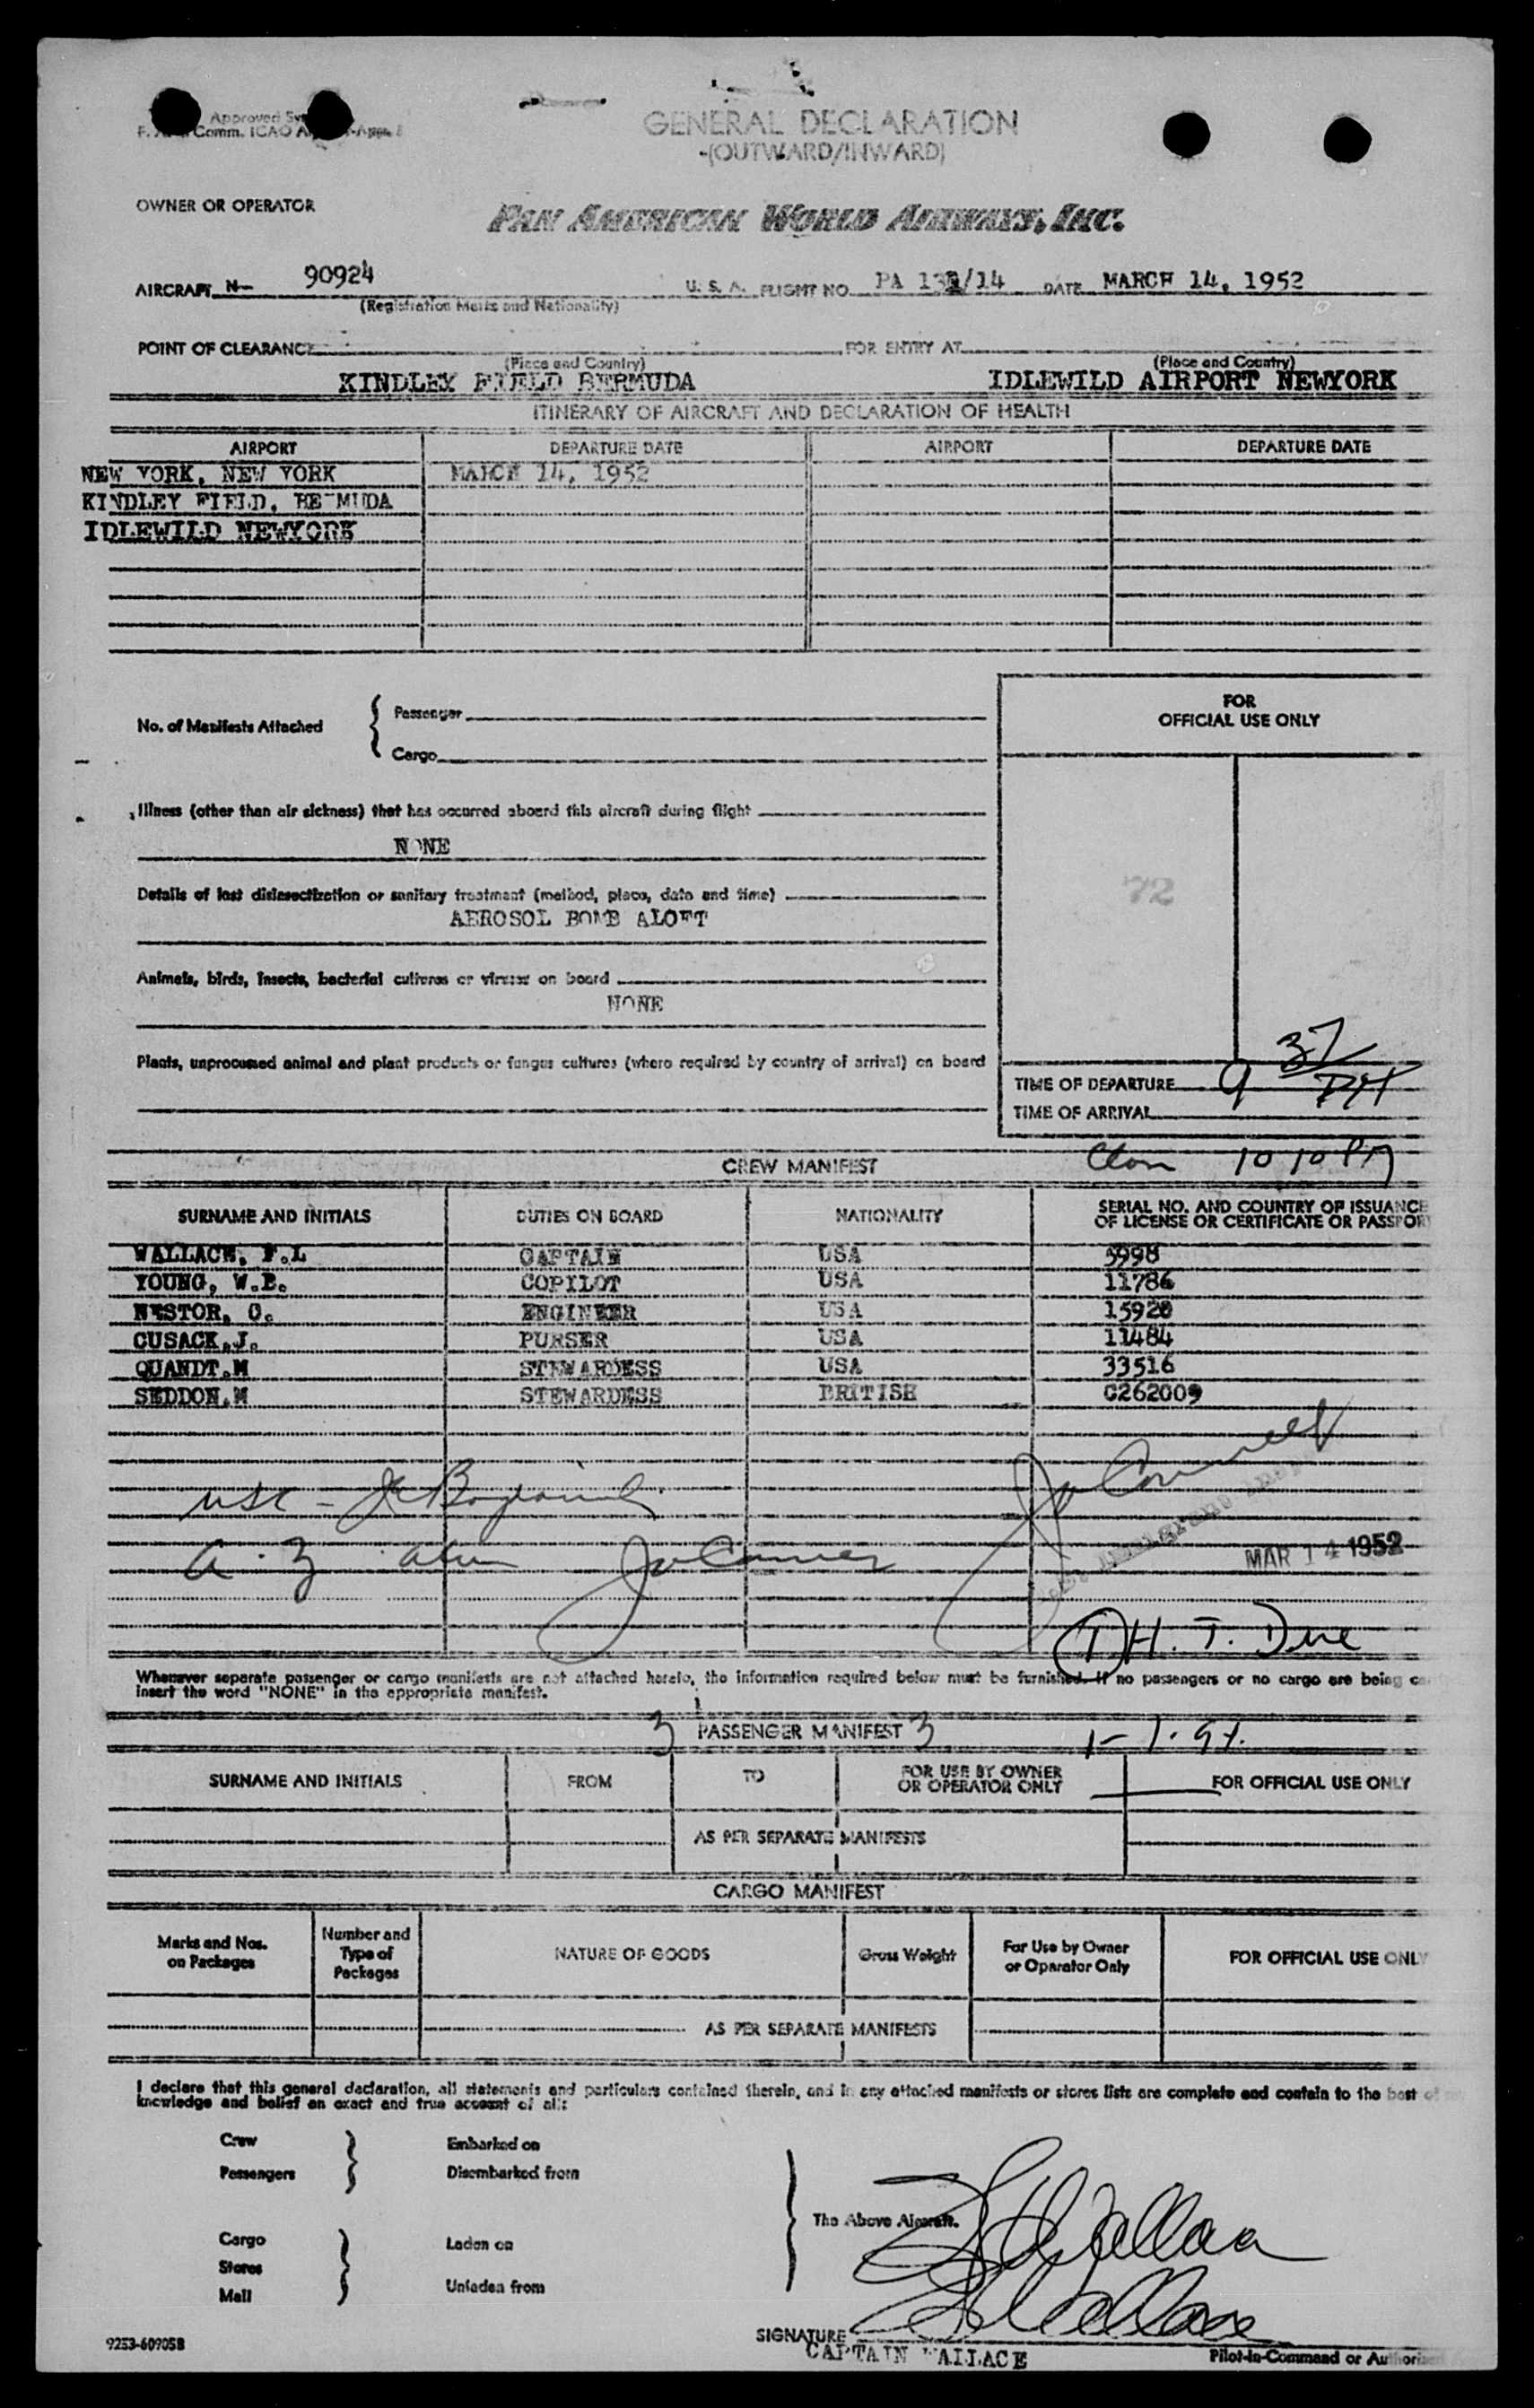 Approved
Comm. ICAO
GENERAL DECLARATION
-(OUTWARD/INWARD)
OWNER OR OPERATOR
PAN AMERICAN WORLD AIRWAYS, INC.
AIRCRAFT N- 90924 U. S. A. FLIGHT NO. PA 13 /14 DATE MARCH 14, 1952
(Registration Marks and Nationality)
POINT OF CLEARANCE FOR ENTRY AT
(Place and Country) (Place and Country)
KINDLEY FIELD BERMUDA IDLEWILD AIRPORT NEWYORK
ITINERARY OF AIRCRAFT AND DECLARATION OF HEALTH
AIRPORT DEPARTURE DATE AIRPORT DEPARTURE DATE
NEW YORK, NEW YORK MARCH 14, 1952
KINDLEY FIELD, BE MUDA
IDLEWILD NEWYORK
FOR
OFFICIAL USE ONLY
No. of Manifests Attached { Passenger
Cargo
Illness (other than air sickness) that has occurred aboard this aircraft during flight
NONE
Details of last disinsectization or sanitary treatment (method, place, date and time)
AEROSOL BOMB ALOFT
72
Animals, birds, insects, bacterial cultures or viruses on board
NONE
Plants, unprocessed animal and plant products or fungus cultures (where required by country of arrival) on board
TIME OF DEPARTURE 9 37
TIME OF ARRIVAL
CREW MANIFEST
10 10 PM
SURNAME AND INITIALS DUTIES ON BOARD NATIONALITY SERIAL NO. AND COUNTRY OF ISSUANCE
OF LICENSE OR CERTIFICATE OR PASSPOR
WALLACE, F.L CAPTAIN USA 5998
YOUNG, W.B. COPILOT USA 11786
NESTOR, O. ENGINEER USA 15920
CUSACK,J. PURSER USA 11484
QUANDT.M STEWARDESS USA 33516
SEDDON.M STEWARDESS BRITISH C262009
MAR 14 1952
(T) H. T.
Whenever separate passenger or cargo manifests are not attached hereto, the information required below must be furnished. If no passengers or no cargo are being
insert the word "NONE" in the appropriate manifest.
3 PASSENGER MANIFEST 3
SURNAME AND INITIALS FROM TO FOR USE BY OWNER
OR OPERATOR ONLY FOR OFFICIAL USE ONLY
AS PER SEPARATE MANIFESTS
CARGO MANIFEST
Marks and Nos.
on Packages Number and
Type of
Packages NATURE OF GOODS Gross Weight For Use by Owner
or Operator Only FOR OFFICIAL USE ONLY
AS PER SEPARATE MANIFESTS
I declare that this general declaration, all statements and particulars contained therein, and in any attached manifests or stores lists are complete and contain to the best of
knowledge and belief an exact and true account of all:
Crew Embarked on
Passengers Disembarked from
The Above Aircraft.
Cargo Laden on
Stores
Mail Unladen from
F L Wallace
F L Wallace
SIGNATURE
CAPTAIN WALLACE
Pilot-in-Command or Authori
9253-60905B